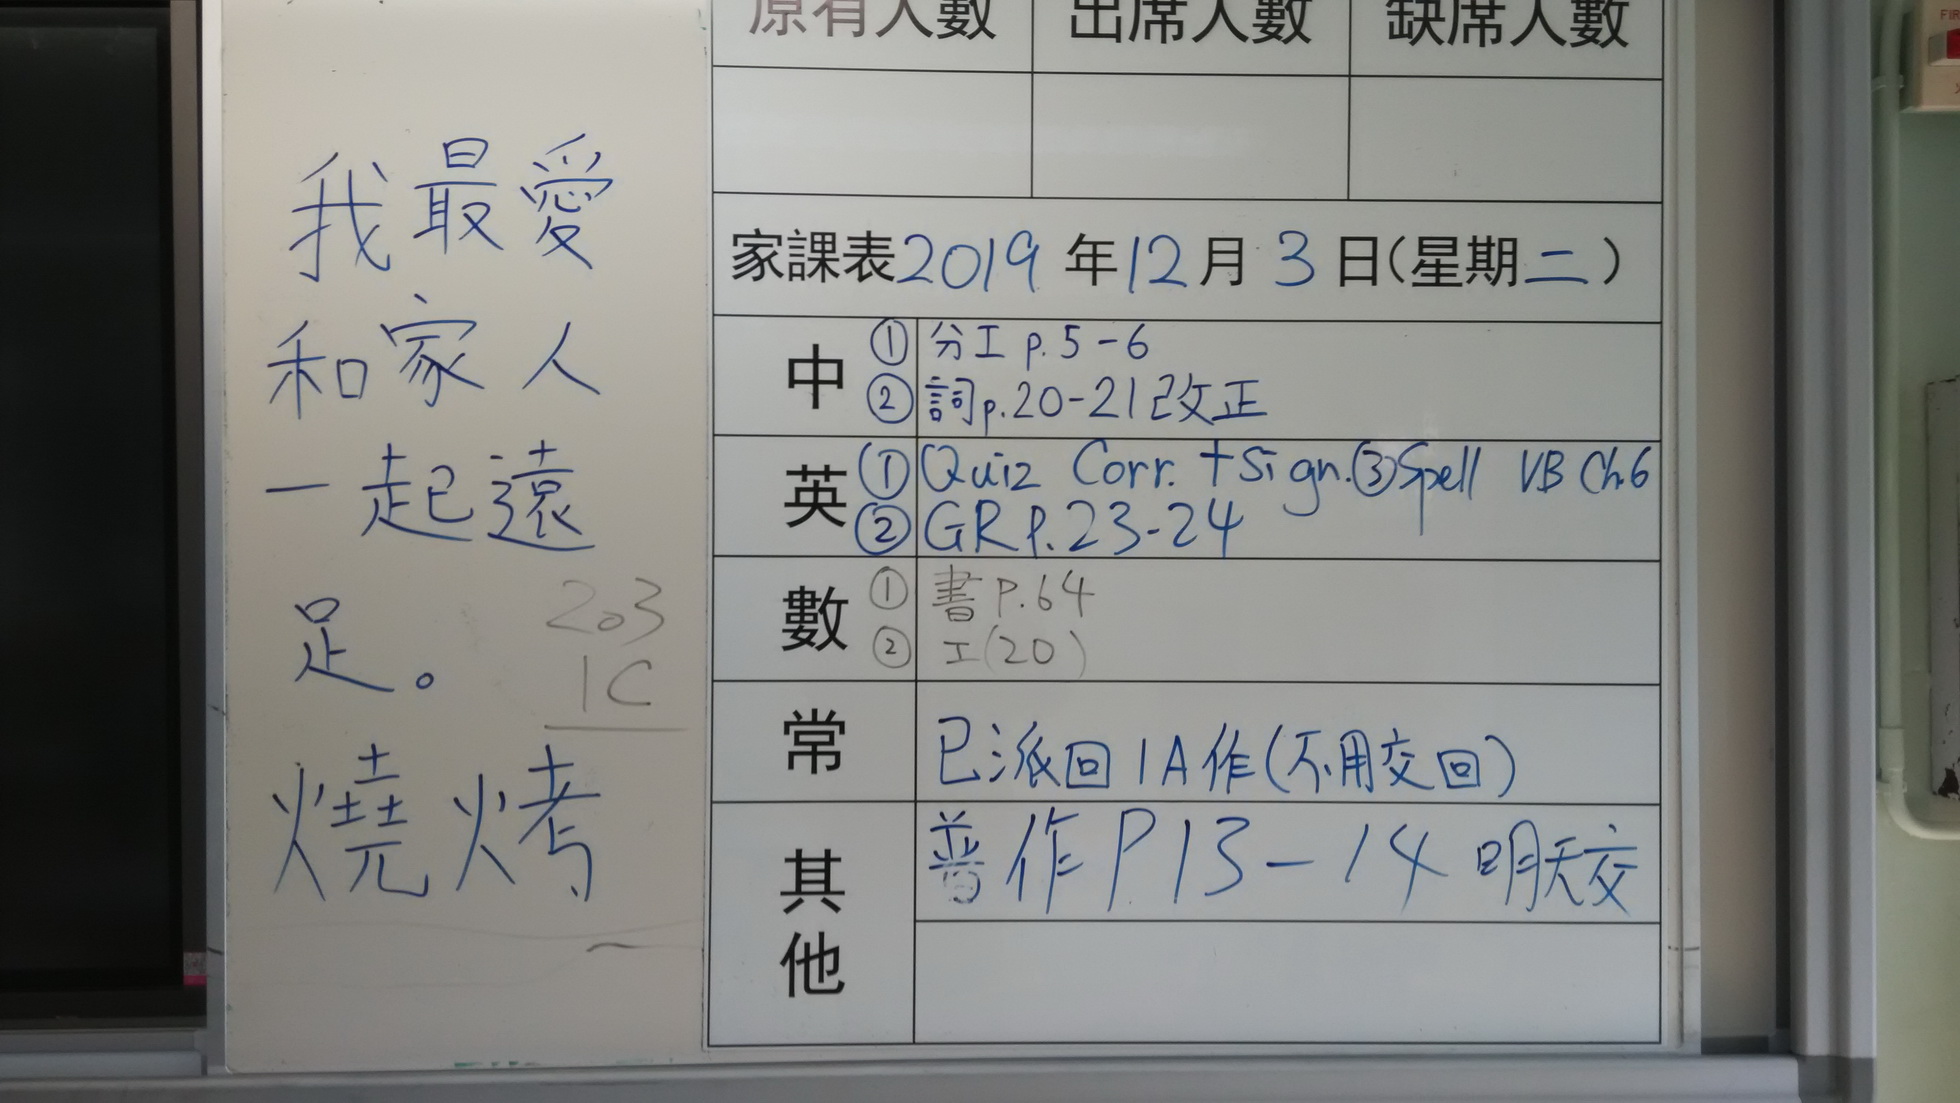 我最愛
和家人
一起遠
足。
203
1C
燒烤
原有人數 出席人數 缺席人數
家課表2019年12月3日(星期二)
中 ① 分工 p.5-6
② 詞p.20-21改正
英 ① Quiz Corr. + Sign. ③ Spell VB Ch.6
② GR P.23-24
數 ① 書 P.64
② 工(20)
常 已派回1A作(不用交回)
其他 普作P.13-14 明天交